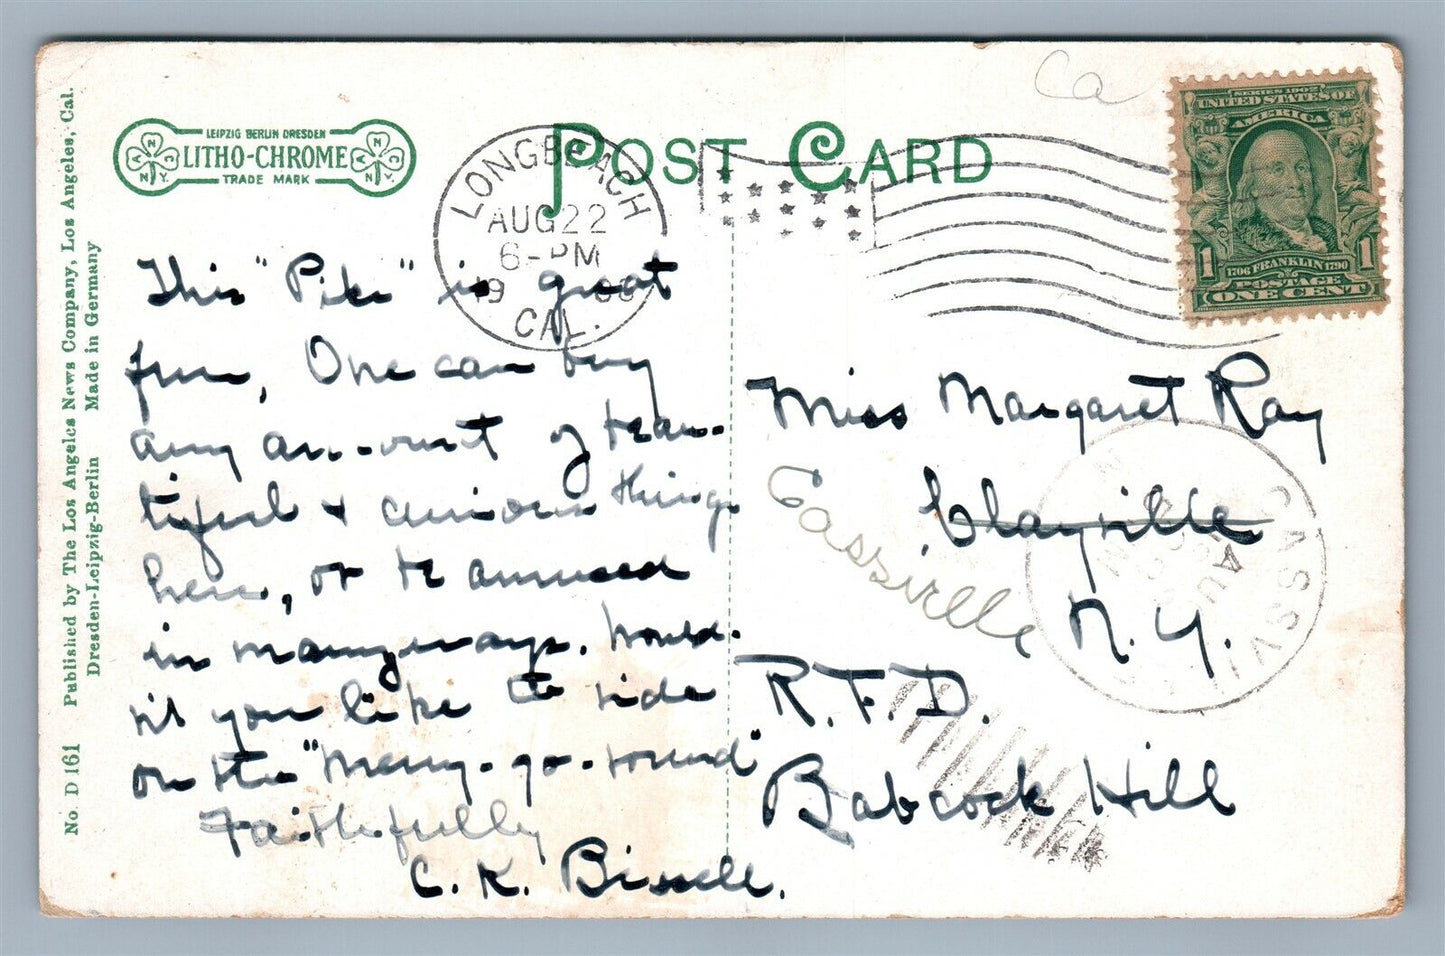 Ca
POST CARD
LEIPZIG BERLIN DRESDEN
LITHO-CHROME
TRADE MARK
LONG BEACH
AUG 22
6-PM
CAL.
SERIES 1902
UNITED STATES OF
AMERICA
1 1
1706 FRANKLIN 1790
POSTAGE
ONE CENT
No. D 161 Published by The Los Angeles News Company, Los Angeles, Cal.
Dresden-Leipzig-Berlin Made in Germany
This "Pike" is great
fun, One can buy
any am-ount of beau-
tiful & curious things
here, or be amused
in many ways. Would-
n't you like to ride
on the "Merry-go-round"
Faithfully
C. K. Bissell.
Miss Margaret Ray
Clayville
Cassville
N. Y.
R. F. D.
Babcock Hill
CASSVILLE
AUG